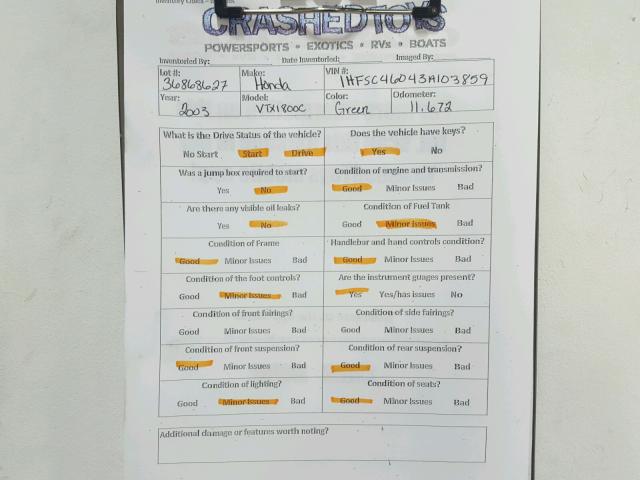 CRASHEDTOYS
POWERSPORTS • EXOTICS • RVs • BOATS
Inventoried By: Date Inventoried: Imaged By:
Lot #: Make: VIN #:
36868627 Honda 1HFSC46043A103859
Year: Model: Color: Odometer:
2003 VTX1800C Green 11,672
What is the Drive Status of the vehicle? Does the vehicle have keys?
No Start Start Drive Yes No
Was a jump box required to start? Condition of engine and transmission?
Yes No Good Minor Issues Bad
Are there any visible oil leaks? Condition of Fuel Tank
Yes No Good Minor Issues Bad
Condition of Frame Handlebar and hand controls condition?
Good Minor Issues Bad Good Minor Issues Bad
Condition of the foot controls? Are the instrument guages present?
Good Minor Issues Bad Yes Yes/has issues No
Condition of front fairings? Condition of side fairings?
Good Minor Issues Bad Good Minor Issues Bad
Condition of front suspension? Condition of rear suspension?
Good Minor Issues Bad Good Minor Issues Bad
Condition of lighting? Condition of seats?
Good Minor Issues Bad Good Minor Issues Bad
Additional damage or features worth noting?